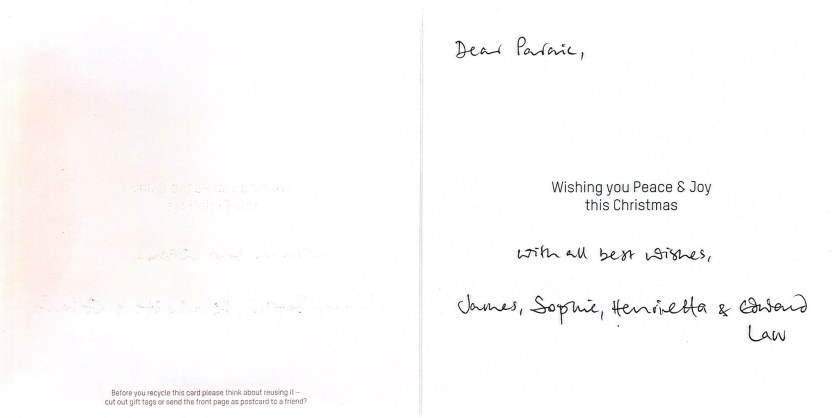 Before you recycle this card please think about reusing it –
cut out gift tags or send the front page as postcard to a friend?
Dear Paraic,
Wishing you Peace & Joy
this Christmas
with all best wishes,
James, Sophie, Henrietta & Edward
Law